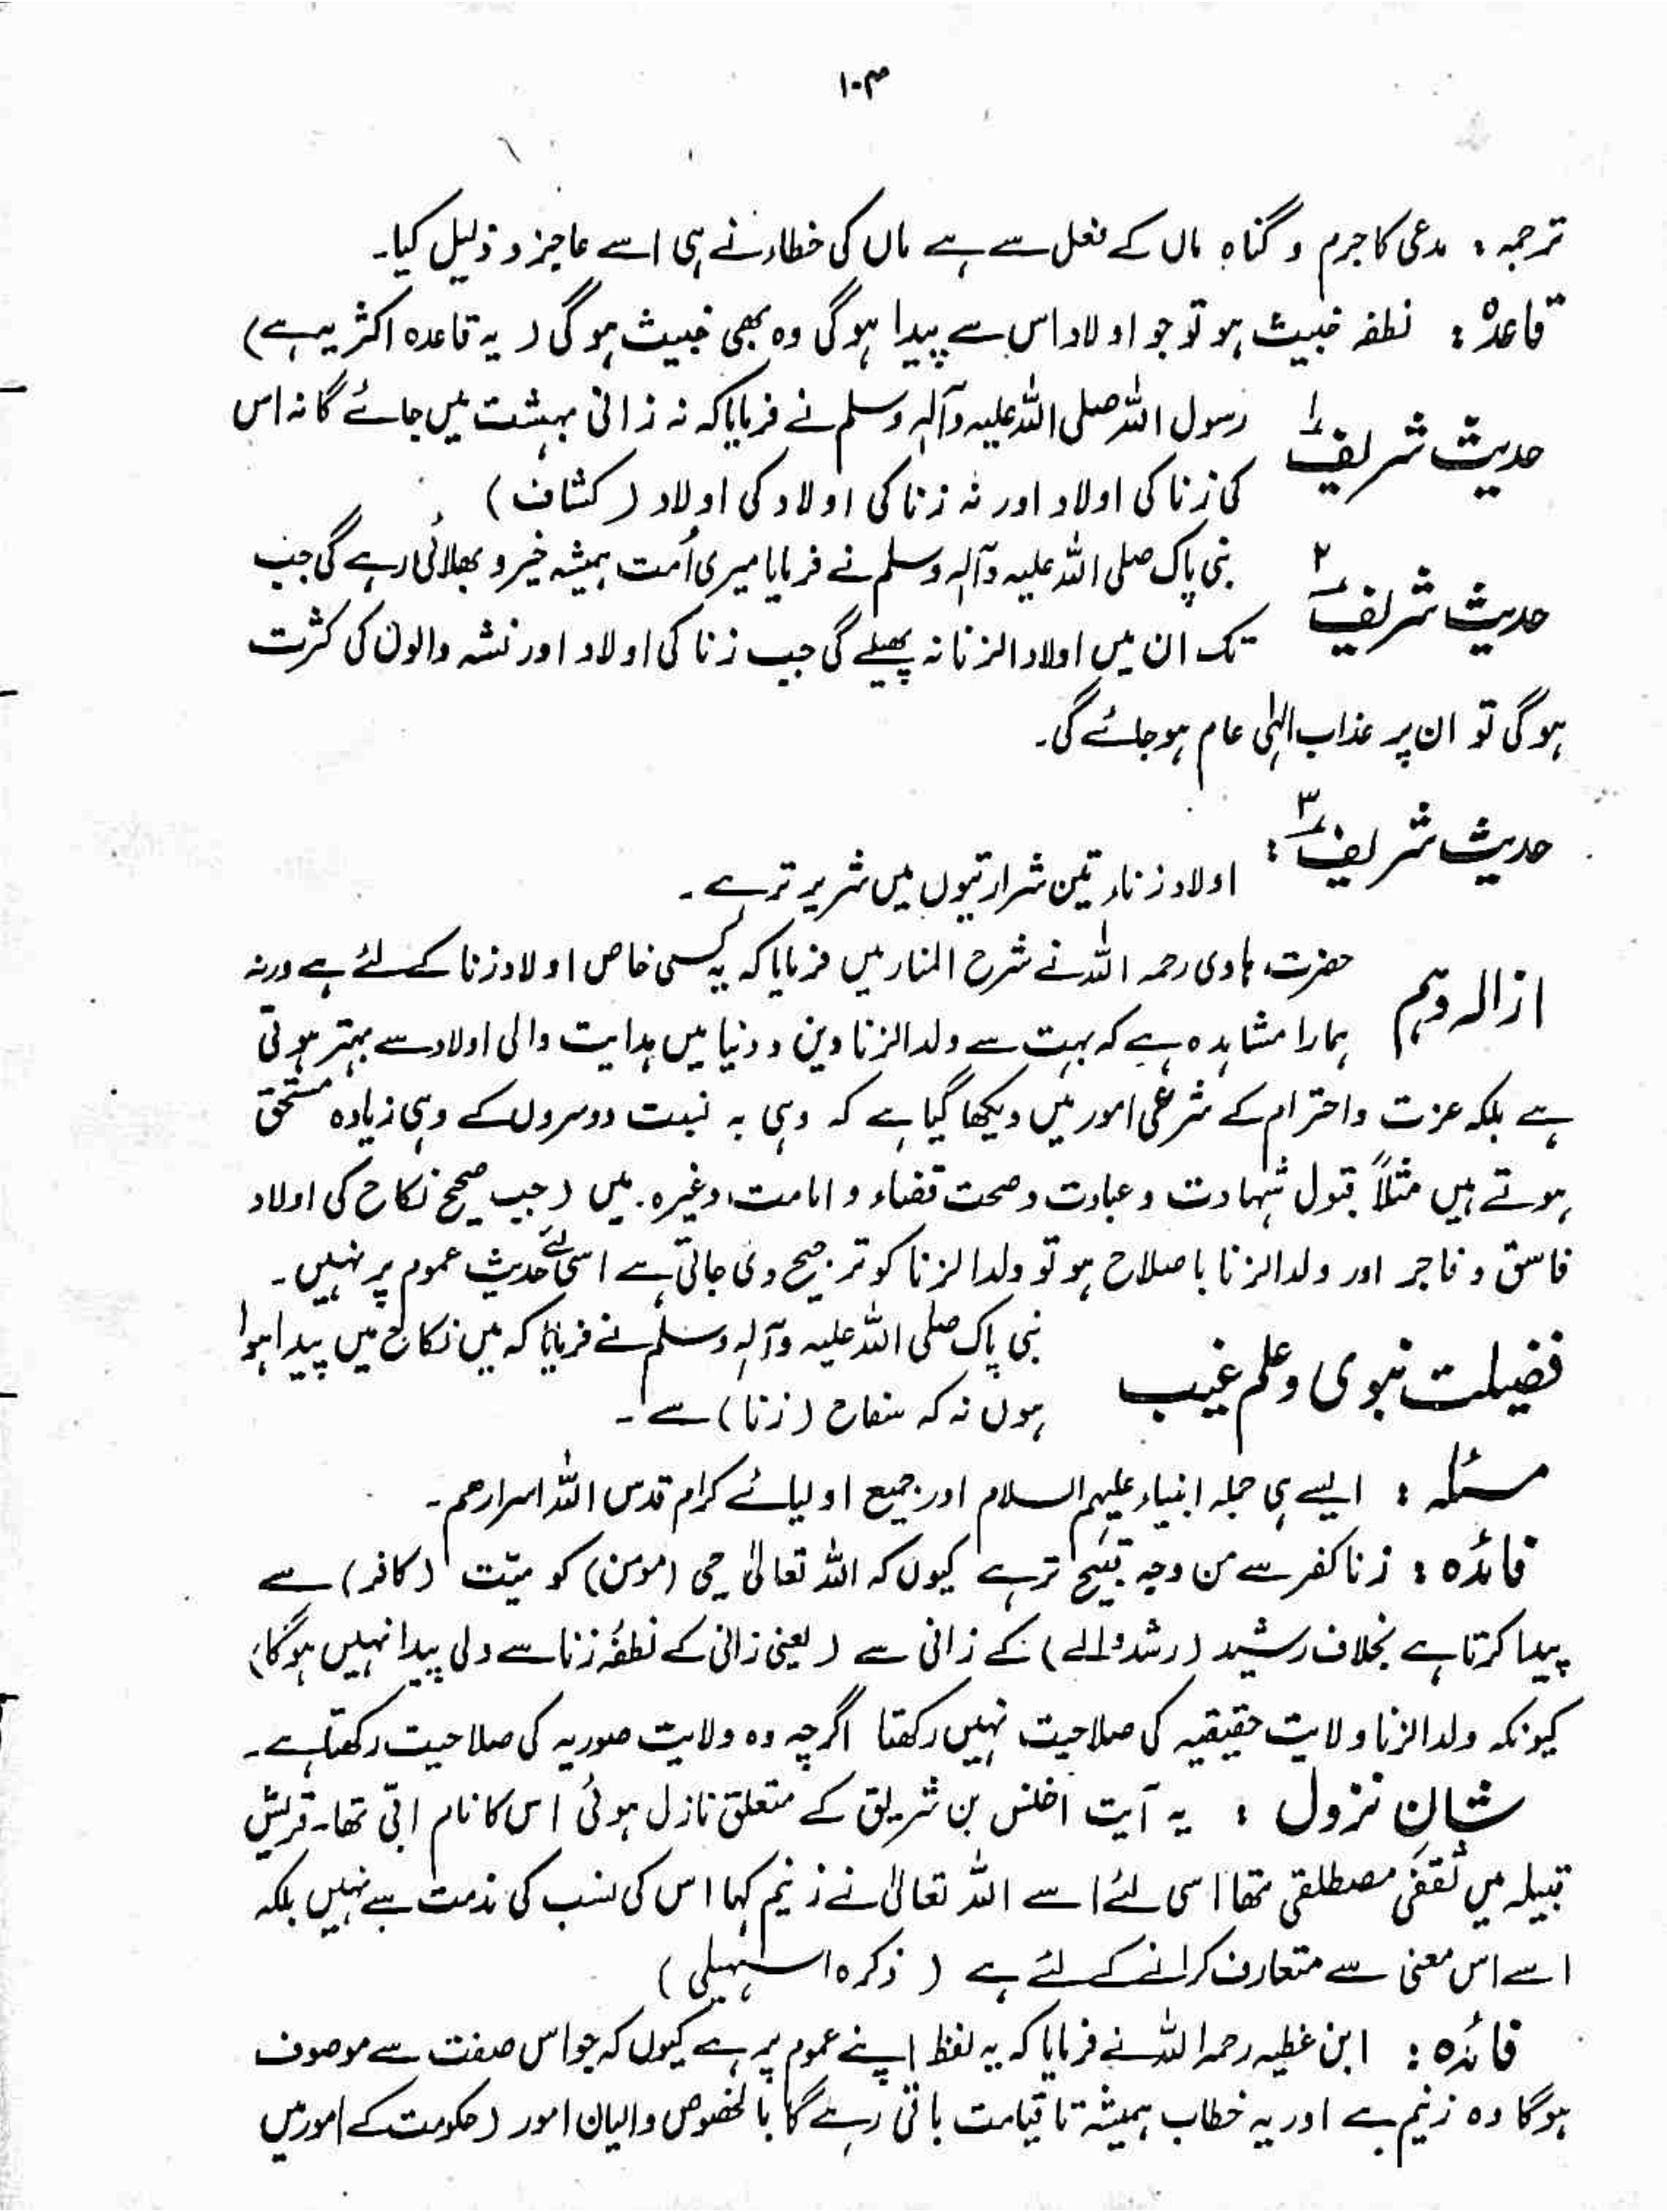 ۱۰۳
ترجمہ : مدعی کا جرم و گناہ ماں کے فعل سے ہے ماں کی خطاء نے ہی اسے عاجز و ذلیل کیا۔
قاعدہ : نطفہ خبیث ہو تو جو اولاد اس سے پیدا ہوگی وہ بھی خبیث ہوگی ( یہ قاعدہ اکثریہ ہے )
حدیث شریف ۱ رسول اللہ صلی اللہ علیہ وآلہ وسلم نے فرمایا کہ نہ زانی بہشت میں جائے گا نہ اس
کی زنا کی اولاد اور نہ زنا کی اولاد کی اولاد ( کشاف )
حدیث شریف ۲ نبی پاک صلی اللہ علیہ وآلہ وسلم نے فرمایا میری اُمت ہمیشہ خیر و بھلائی رہے گی جب
تک ان میں اولاد الزنا نہ پھیلے گی جب زنا کی اولاد اور نشہ والوں کی کثرت
ہوگی تو ان پر عذاب الٰہی عام ہو جائے گی۔
حدیث شریف ۳ : اولاد زناء تین شرارتیوں میں شریر تر ہے ۔
ازالہ وہم حضرت ہاوی رحمہ اللہ نے شرح المنار میں فرمایا کہ یہ کسی خاص اولاد زنا کے لئے ہے ورنہ
ہمارا مشاہدہ ہے کہ بہت سے ولد الزنا دین و دنیا میں ہدایت والی اولاد سے بہتر ہوتی
ہے بلکہ عزت و احترام کے شرعی امور میں دیکھا گیا ہے کہ وہی بہ نسبت دوسروں کے وہی زیادہ مستحق
ہوتے ہیں مثلاً قبول شہادت و عبادت و صحت قضاء و امامت وغیرہ میں ( جب صحیح نکاح کی اولاد
فاسق و فاجر اور ولد الزنا باصلاح ہو تو ولد الزنا کو ترجیح دی جاتی ہے اسی لئے حدیث عموم پر نہیں ۔
فضیلت نبوی و علم غیب نبی پاک صلی اللہ علیہ وآلہ وسلم نے فرمایا کہ میں نکاح میں پیدا ہوا
ہوں نہ کہ سفاح ( زنا ) سے ۔
مسئلہ : ایسے ہی جملہ انبیاء علیہم السلام اور جمیع اولیائے کرام قدس اللہ اسرارھم ۔
فائدہ : زنا کفر سے من وجہ قبیح تر ہے کیوں کہ اللہ تعالیٰ حی (مومن) کو میّت ( کافر ) سے
پیدا کرتا ہے بخلاف رشید ( رشد والے ) کے زانی سے ( یعنی زانی کے نطفۂ زنا سے ولی پیدا نہیں ہوگا)
کیونکہ ولد الزنا ولایت حقیقیہ کی صلاحیت نہیں رکھتا اگرچہ وہ ولایت صوریہ کی صلاحیت رکھتا ہے ۔
شان نزول : یہ آیت اخنس بن شریق کے متعلق نازل ہوئی اس کا نام ابی تھا۔ قریش
قبیلہ میں ثقفی مصطلقی تھا اسی لئے اسے اللہ تعالیٰ نے زنیم کہا اس کی نسب کی مذمت سے نہیں بلکہ
اسے اس معنی سے متعارف کرانے کے لئے ہے ( ذکرہ السہیلی )
فائدہ : ابن عطیہ رحمہ اللہ نے فرمایا کہ یہ لفظ اپنے عموم پر ہے کیوں کہ جو اس صفت سے موصوف
ہوگا وہ زنیم ہے اور یہ خطاب ہمیشہ تا قیامت باقی رہے گا بالخصوص والیان امور ( حکومت کے امور میں